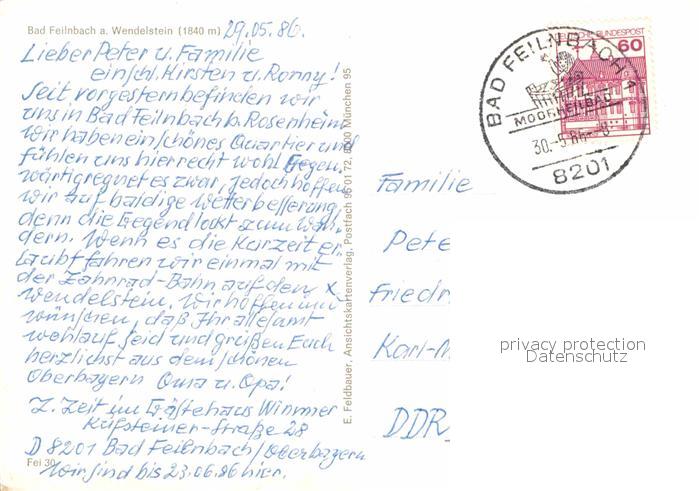 Bad Feilnbach a. Wendelstein (1840 m)
29.05.86.
Lieber Peter u. Familie
einschl. Kirsten u. Ronny!
Seit vorgestern befinden wir
uns in Bad Feilnbach b. Rosenheim
wir haben ein schönes Quartier und
fühlen uns hier recht wohl Gegen-
wärtig regnet es zwar, jedoch hoffen
wir auf baldige Wetterbesserung,
denn die Gegend lockt zum Wan-
dern. Wenn es die Kurzeit er-
laubt fahren wir einmal mit
der Zahnrad-Bahn auf den x
Wendelstein. Wir hoffen und
wünschen, daß Ihr allesamt
wohlauf seid und grüßen Euch
herzlichst aus dem schönen
Oberbayern Oma u. Opa!
Z. Zeit im Gästehaus Wimmer
Kufsteiner-Straße 28
D 8201 Bad Feilnbach/Oberbayern
Wir sind bis 23.06.86 hier.
Fei 30
E. Feldbauer, Ansichtskartenverlag, Postfach 95 01 72, 8000 München 95
DEUTSCHE BUNDESPOST
60
BAD FEILNBACH 1
MOORHEILBAD
30.-5.86.-8
8201
Familie
Pete
Friedr
Karl-M
DDR
privacy protection
Datenschutz